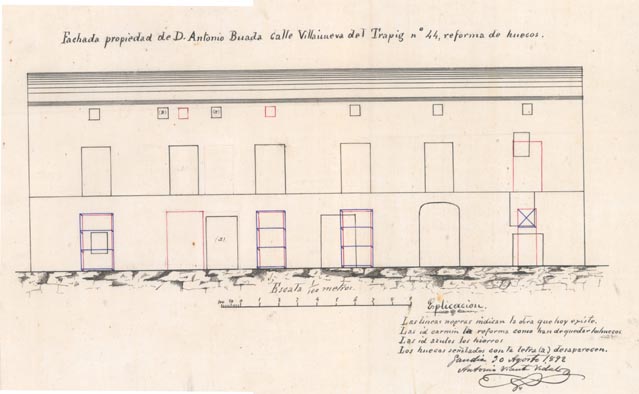 Fachada propiedad de D. Antonio Buada calle Villanueva del Trapig nº 44, reforma de huecos.
(a) (a)
(a)
Escala 1/100 metros.
Explicacion.
Las lineas negras indican la obra que hoy existe.
Las id carmin la reforma como han de quedar los huecos
Las id azules los hierros
Los huecos señalados con la letra (a) desaparecen.
Gandia 30 Agosto 1892
Antonio Vidal